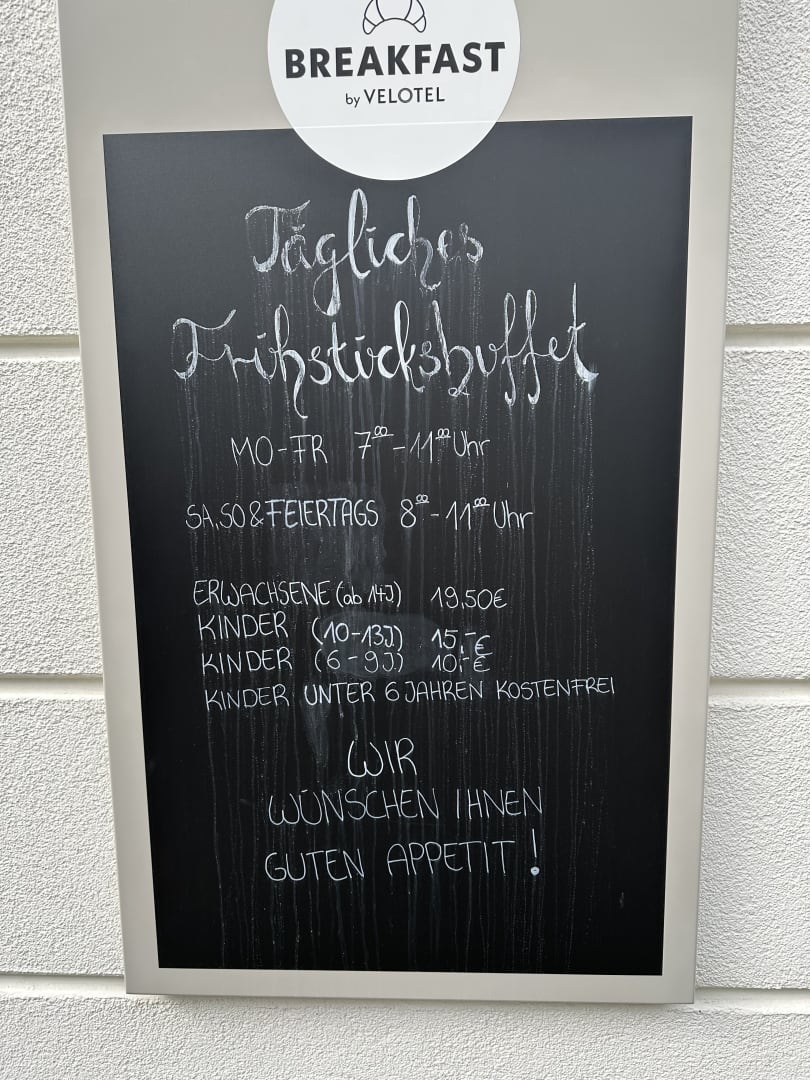 BREAKFAST
by VELOTEL
Tägliches
Frühstücksbuffet
MO-FR 7⁰⁰-11⁰⁰ Uhr
SA, SO & FEIERTAGS 8⁰⁰-11⁰⁰ Uhr
ERWACHSENE (ab 14J) 19,50€
KINDER (10-13J) 15,-€
KINDER (6-9J) 10,-€
KINDER UNTER 6 JAHREN KOSTENFREI
WIR
WÜNSCHEN IHNEN
GUTEN APPETIT!